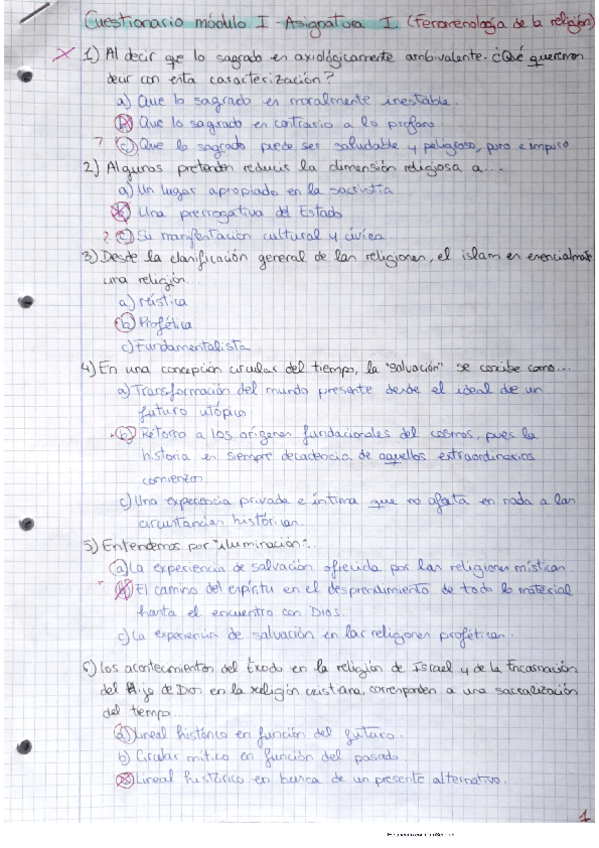 Cuestionario módulo I - Asignatura I. (Fenomenología de la religión)
X 1) Al decir que lo sagrado es axiológicamente ambivalente. ¿Qué queremos
decir con esta caracterización?
a) Que lo sagrado es moralmente inestable.
b) Que lo sagrado es contrario a lo profano.
? c) Que lo sagrado puede ser saludable y peligroso, puro e impuro
2) Algunos pretenden reducir la dimensión religiosa a...
a) Un lugar apropiado en la sacristía
b) Una prerrogativa del Estado
? c) Su manifestación cultural y cívica
3) Desde la clasificación general de las religiones, el islam es esencialmente
una religión.
a) Mística
b) Profética
c) Fundamentalista
4) En una concepción circular del tiempo, la "salvación" se concibe como...
a) Transformación del mundo presente desde el ideal de un
futuro utópico
b) Retorno a los orígenes fundacionales del cosmos, pues la
historia es siempre decadencia de aquellos extraordinarios
comienzos
c) Una experiencia privada e íntima que no afecta en nada a las
circunstancias históricas.
5) Entendemos por "iluminación"...
a) La experiencia de salvación ofrecida por las religiones místicas.
b) El camino del espíritu en el desprendimiento de todo lo material
hasta el encuentro con Dios.
c) La experiencia de salvación en las religiones proféticas.
6) Los acontecimientos del Éxodo en la religión de Israel y de la Encarnación
del Hijo de Dios en la religión cristiana, corresponden a una sacralización
del tiempo...
a) Lineal histórico en función del futuro.
b) Circular mítico en función del pasado
c) Lineal histórico en busca de un presente alternativo.
1